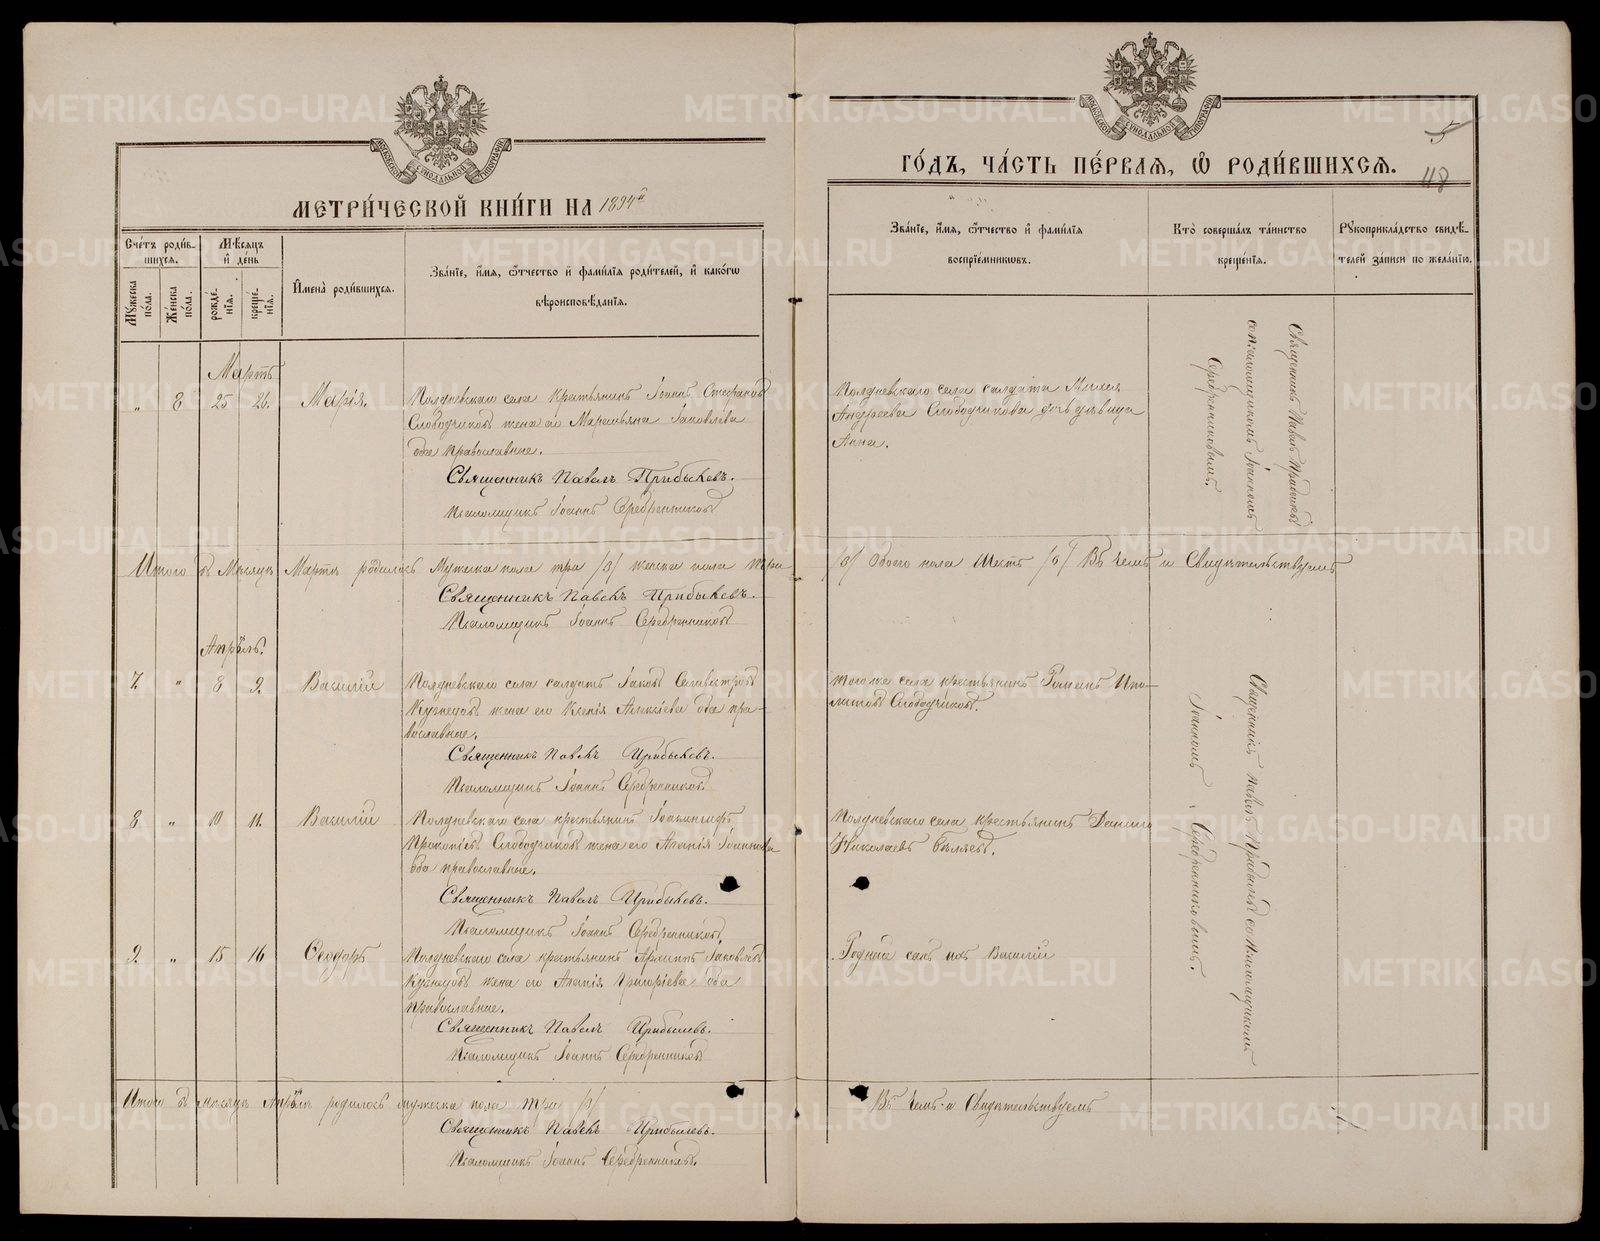 МЕТРИ́ЧЕСКОЙ КНИ́ГИ НА 1894й
ГО́ДЪ, ЧА́СТЬ ПЕ́РВАЯ, Ѡ РОДИ́ВШИХСЯ.
5
118
Сче́тъ роди́в-
шихся.
Мꙋжеска по́ла.
Же́нска по́ла.
Мѣ́сяцъ
и҆ де́нь
рожде́-
нїя.
креще́-
нїя.
И҆мена̀ роди́вшихся.
Зва́нїе, и҆́мя, ѻ҆́тчество и҆ фами́лїя роди́телей, и҆ како́гѡ
вѣроисповѣ́данїя.
Зва́нїе, и҆́мя, ѻ҆́тчество и҆ фами́лїя
воспрїе́мниковъ.
Кто̀ соверша́лъ та́инство
креще́нїя.
Рꙋкоприкла́дство свидѣ́-
телей за́писи по жела́нїю.
Мартъ
" 8 25 26. Марія.
Полдневскаго села крестьянинъ Іоаннъ Стефановъ
Слободчиковъ жена его Маремьяна Іаковлева
оба православные.
Священникъ Павелъ Прибылевъ.
Псаломщикъ Іоаннъ Серебренниковъ
Полдневскаго села солдата
Андреева Слободчикова дочь девица
Анна.
Священникъ Павелъ Прибылевъ
съ псаломщикомъ Іоанномъ
Серебренниковымъ.
Итого въ Мѣсяцѣ Мартѣ родилось Мужеска пола три /3/ женска пола три
/3/ Обоего пола Шесть /6/ Въ чемъ и Свидѣтельствуемъ
Священникъ Павелъ Прибылевъ.
Псаломщикъ Іоаннъ Серебренниковъ
Апрѣль.
7. " 8 9. Василій
Полдневскаго села солдатъ Іаковъ Селивестровъ
Кузнецовъ жена его Ксенія Алексіева оба пра-
вославные.
Священникъ Павелъ Прибылевъ.
Псаломщикъ Іоаннъ Серебренниковъ
того же села крестьянинъ Романъ Ипо-
литовъ Слободчиковъ.
Священникъ Павелъ Прибылевъ со Псаломщикомъ
Іоанномъ Серебренниковымъ.
8 " 10 11. Василій
Полдневскаго села крестьянинъ
Прокопіевъ Слободчиковъ жена его Агапія Іоаннова
оба православные.
Священникъ Павелъ Прибылевъ.
Псаломщикъ Іоаннъ Серебренниковъ
Полдневскаго села крестьянинъ Данило
Николаевъ Бѣляевъ.
9. " 15 16 Ѳеодоръ
Полдневскаго села крестьянинъ Архиппъ Іаковлевъ
Кузнецовъ жена его Агапія Григоріева оба
православные.
Священникъ Павелъ Прибылевъ.
Псаломщикъ Іоаннъ Серебренниковъ
Родной сынъ ихъ Василій
Итого въ мѣсяцѣ Апрѣлѣ родилось мужеска пола три /3/
Въ чемъ и Свидѣтельствуемъ
Священникъ Павелъ Прибылевъ.
Псаломщикъ Іоаннъ Серебренниковъ.
METRIKI.GASO-URAL.RU